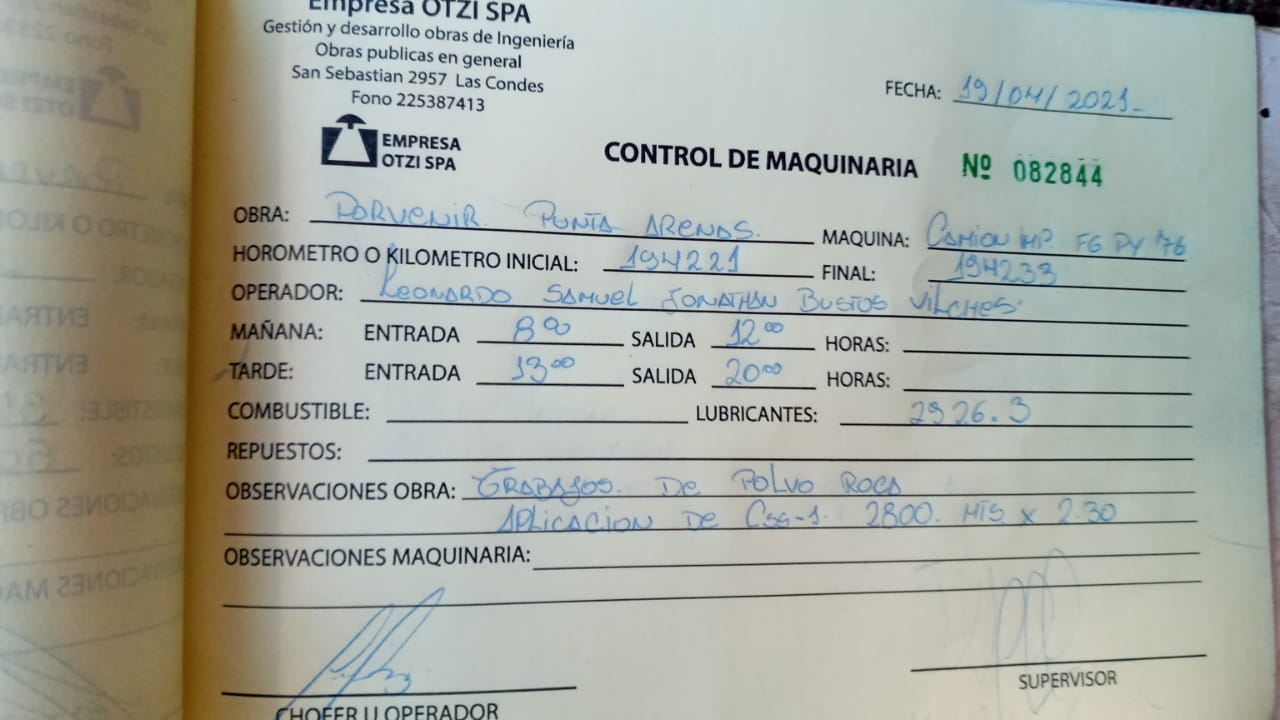 Empresa OTZI SPA
Gestión y desarrollo obras de Ingeniería
Obras publicas en general
San Sebastian 2957 Las Condes
Fono 225387413
FECHA: 19/04/2021
EMPRESA
OTZI SPA
CONTROL DE MAQUINARIA Nº 082844
OBRA: PORVENIR. PUNTA ARENAS. MAQUINA: CAMION MP. FG PY 76
HOROMETRO O KILOMETRO INICIAL: 194221 FINAL: 194233
OPERADOR: Leonardo Samuel Jonathan Bustos Vilches.
MAÑANA: ENTRADA 8:00 SALIDA 12:00 HORAS:
TARDE: ENTRADA 13:00 SALIDA 20:00 HORAS:
COMBUSTIBLE: LUBRICANTES: 2926.3
REPUESTOS:
OBSERVACIONES OBRA: TRABAJOS. De POLVO ROCA
APLICACION DE CSS-1. 2800. MTS x 2.30
OBSERVACIONES MAQUINARIA:
SUPERVISOR
CHOFER U OPERADOR